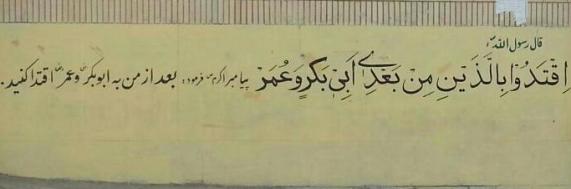 قال رسول الله ﷺ:
اِقْتَدُوْا بِالَّذَيْنِ مِنْ بَعْدِيْ أَبِيْ بَكْرٍ وَ عُمَرَ پیامبر اکرم ﷺ فرمود: بعد از من به ابوبکرؓ و عمرؓ اقتدا کنید.